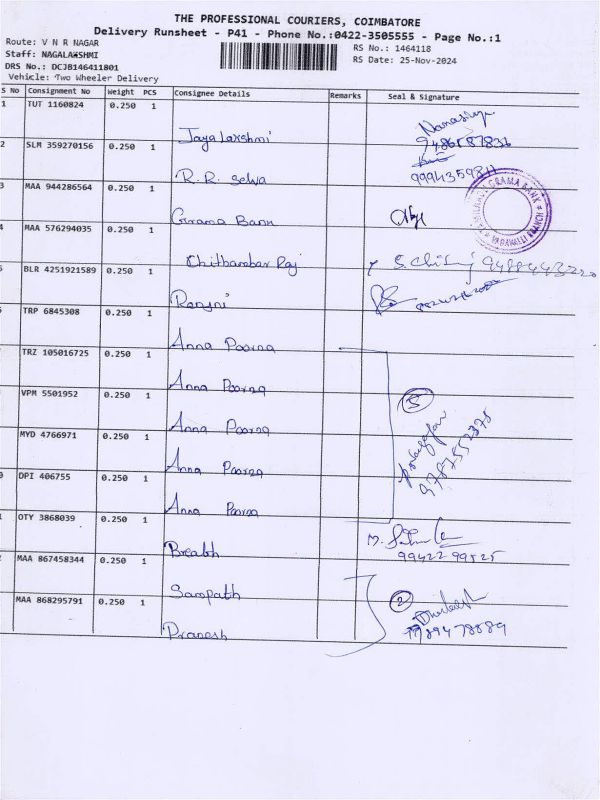 THE PROFESSIONAL COURIERS, COIMBATORE
Delivery Runsheet - P41 - Phone No.:0422-3505555 - Page No.:1
Route: V N R NAGAR RS No.: 1464118
Staff: NAGALAKSHMI RS Date: 25-Nov-2024
DRS No.: DCJB146411801
Vehicle: Two Wheeler Delivery
S No Consignment No Weight PCS Consignee Details Remarks Seal & Signature
1 TUT 1160824 0.250 1
Jaya Laxshmi
2 SLM 359270156 0.250 1
R.R. Selva
3 MAA 944286564 0.250 1
Grama Bank
GRAMA BANK
BRANCH
4 MAA 576294035 0.250 1
Chithambar Raj
BLR 4251921589 0.250 1
Ranjni
TRP 6845308 0.250 1
Anna Poorna
TRZ 105016725 0.250 1
Anna Poorna
VPM 5501952 0.250 1
Anna Poorna
5
MYD 4766971 0.250 1
Anna Poorna
DPI 406755 0.250 1
Anna Poorna
OTY 3868039 0.250 1
99422 99525
MAA 867458344 0.250 1
Sampath
2
MAA 868295791 0.250 1
Pranesh